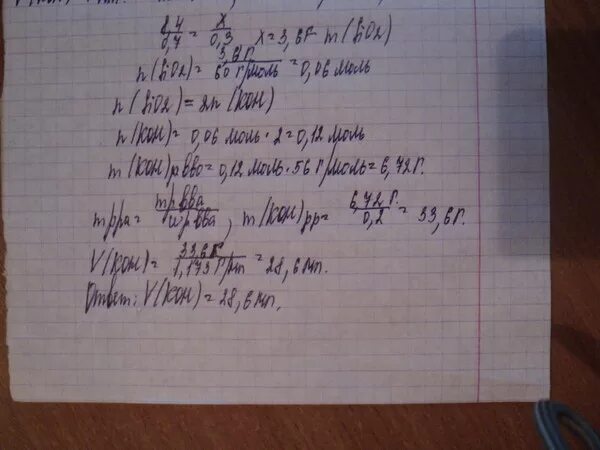 8,4/0,7 = x/0,3 x=3,6г m(SiO2)
n(SiO2)= 3,6г/60 г/моль =0,06 моль
n(SiO2)=2n(KOH)
n(KOH)=0,06 моль·2=0,12 моль
m(KOH)р.вво=0,12 моль·56 г/моль=6,72г.
mрра= mр.вва/wр.вва, m(KOH)рр= 6,72г./0,2 = 33,6г.
V(KOH)= 33,6г/1,173 г/мл =28,6 мл.
Ответ: V(KOH)=28,6 мл.